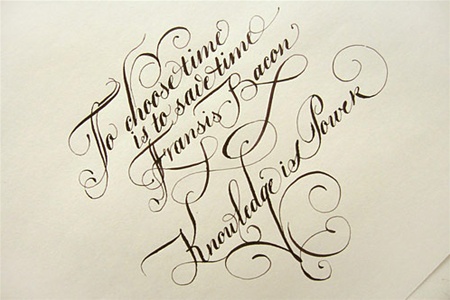 To choose time
is to save time
Fransis Bacon
Knowledge is Power